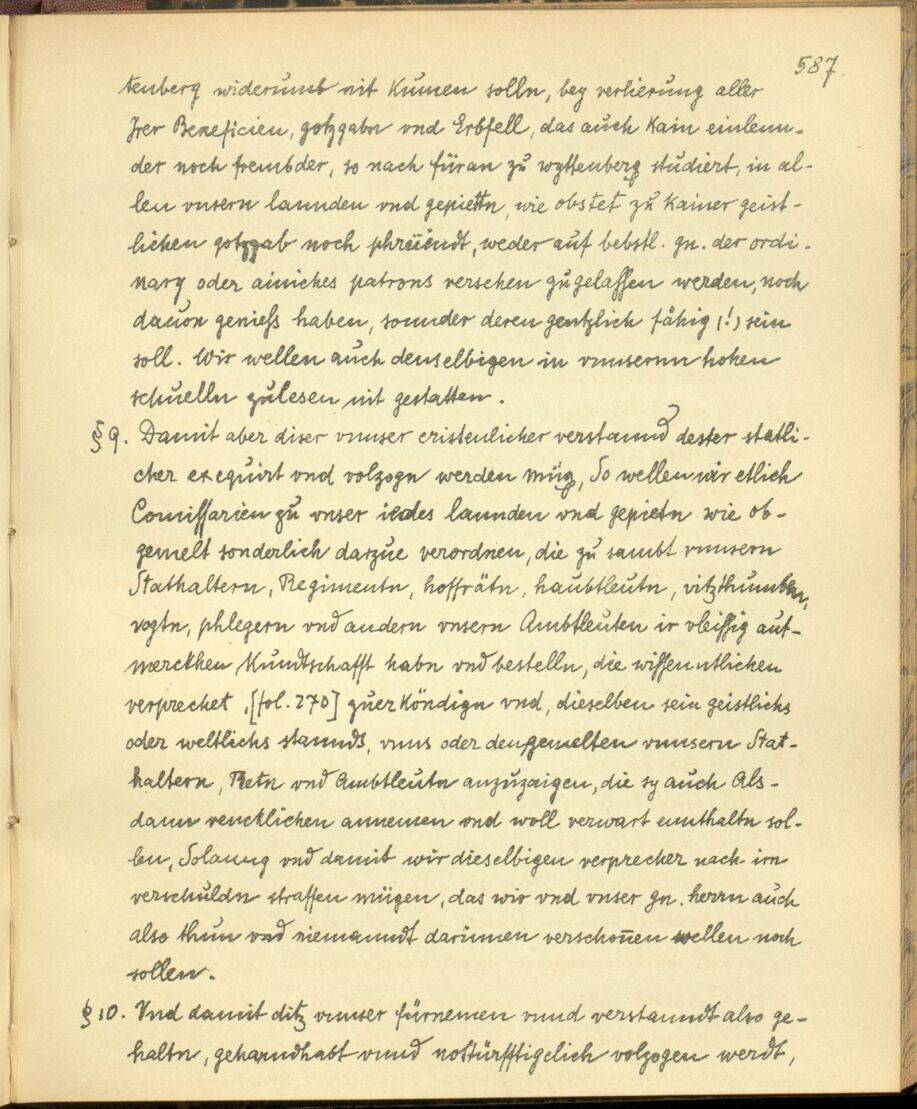 587.
tenberg widerumb nit kumen solln, bey verlierung aller
Jrer Beneficien, gotzgabn vnd Erbfell, das auch kain einlenn-
der noch frembder, so nach füran zu wyttenberg studiert, in al-
len vnsern lannden vnd gepiettn, wie obstet zu kainer geist-
lichen gotzgab noch phrüendt, weder auf bebstl. gn. der ordi-
nary oder ainiches patrons versehen zugelassen werden, noch
dauon genieß haben, sonnder deren gentzlich fähig (!) sein
soll. Wir wellen auch denselbigen in vnnsernn hohen
schuelln zulesen nit gestatten.
§ 9. Damit aber diser vnnser cristenlicher verstannd dester statli-
cher exequirt vnd volzogn werden müg, So wellen wir etlich
Comissarien zu vnser iedes lannden vnd gepietn wie ob-
gemelt sonderlich darzue verordnen, die zu sambt vnnsern
Stathaltern, Regimentn, hoffrätn, haubtleutn, vitzthumben,
vogtn, phlegern vnd andern vnsern Ambtleuten ir vleissig auf-
merckhen Kundtschafft habn vnd bestelln, die wissenntlichen
verprechet, [fol. 270] zuerköndign vnd, dieselben sein geistlichs
oder weltlichs stannds, vnns oder den gemelten vnnsern Stat-
haltern, Retn vnd Ambtleutn anzuzaigen, die sy auch Als-
dann vencklichen annemen vnd woll verwart ennthaltn sol-
len, Solanng vnd damit wir dieselbigen verprecher nach irn
verschuldn straffen mügen, das wir vnd vnser gn. herrn auch
also thun vnd niemanndt darinnen verschonen wellen noch
sollen.
§ 10. Vnd damit ditz vnnser fürnemen vnnd verstanndt also ge-
haltn, gehanndhabt vnnd notürfftigelich volzogen werdt,